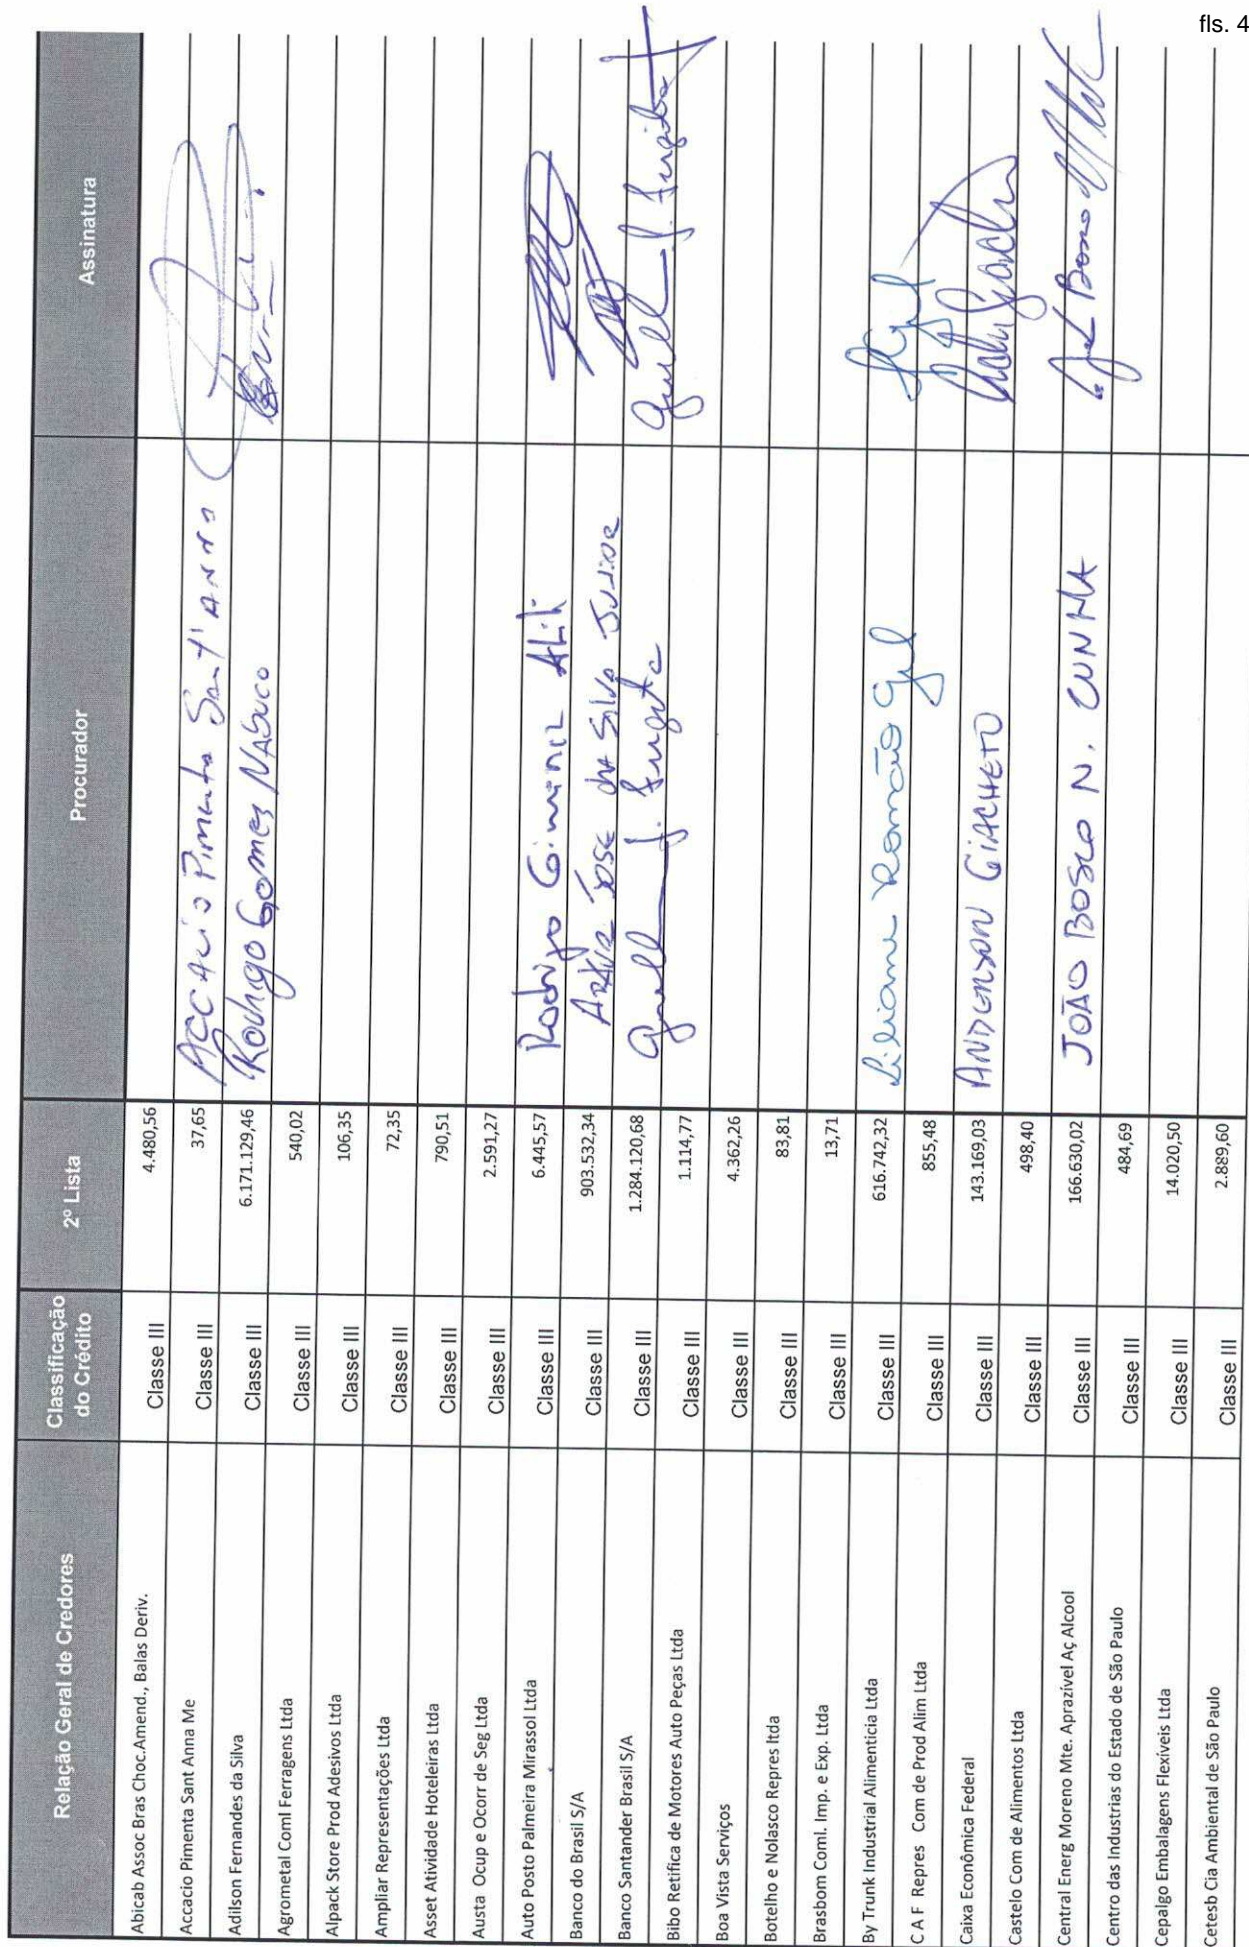 fls. 4
Relação Geral de Credores Classificação do Crédito 2º Lista Procurador Assinatura
Abicab Assoc Bras Choc.Amend., Balas Deriv. Classe III 4.480,56
Accacio Pimenta Sant Anna Me Classe III 37,65 ACCACIO Pimenta Sant'Anna
Adilson Fernandes da Silva Classe III 6.171.129,46 Rodrigo Gomes Nabuco
Agrometal Coml Ferragens Ltda Classe III 540,02
Alpack Store Prod Adesivos Ltda Classe III 106,35
Ampliar Representações Ltda Classe III 72,35
Asset Atividade Hoteleiras Ltda Classe III 790,51
Austa Ocup e Ocorr de Seg Ltda Classe III 2.591,27
Auto Posto Palmeira Mirassol Ltda Classe III 6.445,57 Rodrigo
Banco do Brasil S/A Classe III 903.532,34 José da Silva Junior
Banco Santander Brasil S/A Classe III 1.284.120,68
Bibo Retifica de Motores Auto Peças Ltda Classe III 1.114,77
Boa Vista Serviços Classe III 4.362,26
Botelho e Nolasco Repres ltda Classe III 83,81
Brasbom Coml. Imp. e Exp. Ltda Classe III 13,71
By Trunk Industrial Alimenticia Ltda Classe III 616.742,32 Liliane Romão Gel
C A F Repres Com de Prod Alim Ltda Classe III 855,48
Caixa Econômica Federal Classe III 143.169,03 ANDERSON GIACHETO
Castelo Com de Alimentos Ltda Classe III 498,40
Central Energ Moreno Mte. Aprazível Aç Alcool Classe III 166.630,02 JOÃO BOSCO N. CUNHA
Centro das Industrias do Estado de São Paulo Classe III 484,69
Cepalgo Embalagens Flexíveis Ltda Classe III 14.020,50
Cetesb Cia Ambiental de São Paulo Classe III 2.889,60